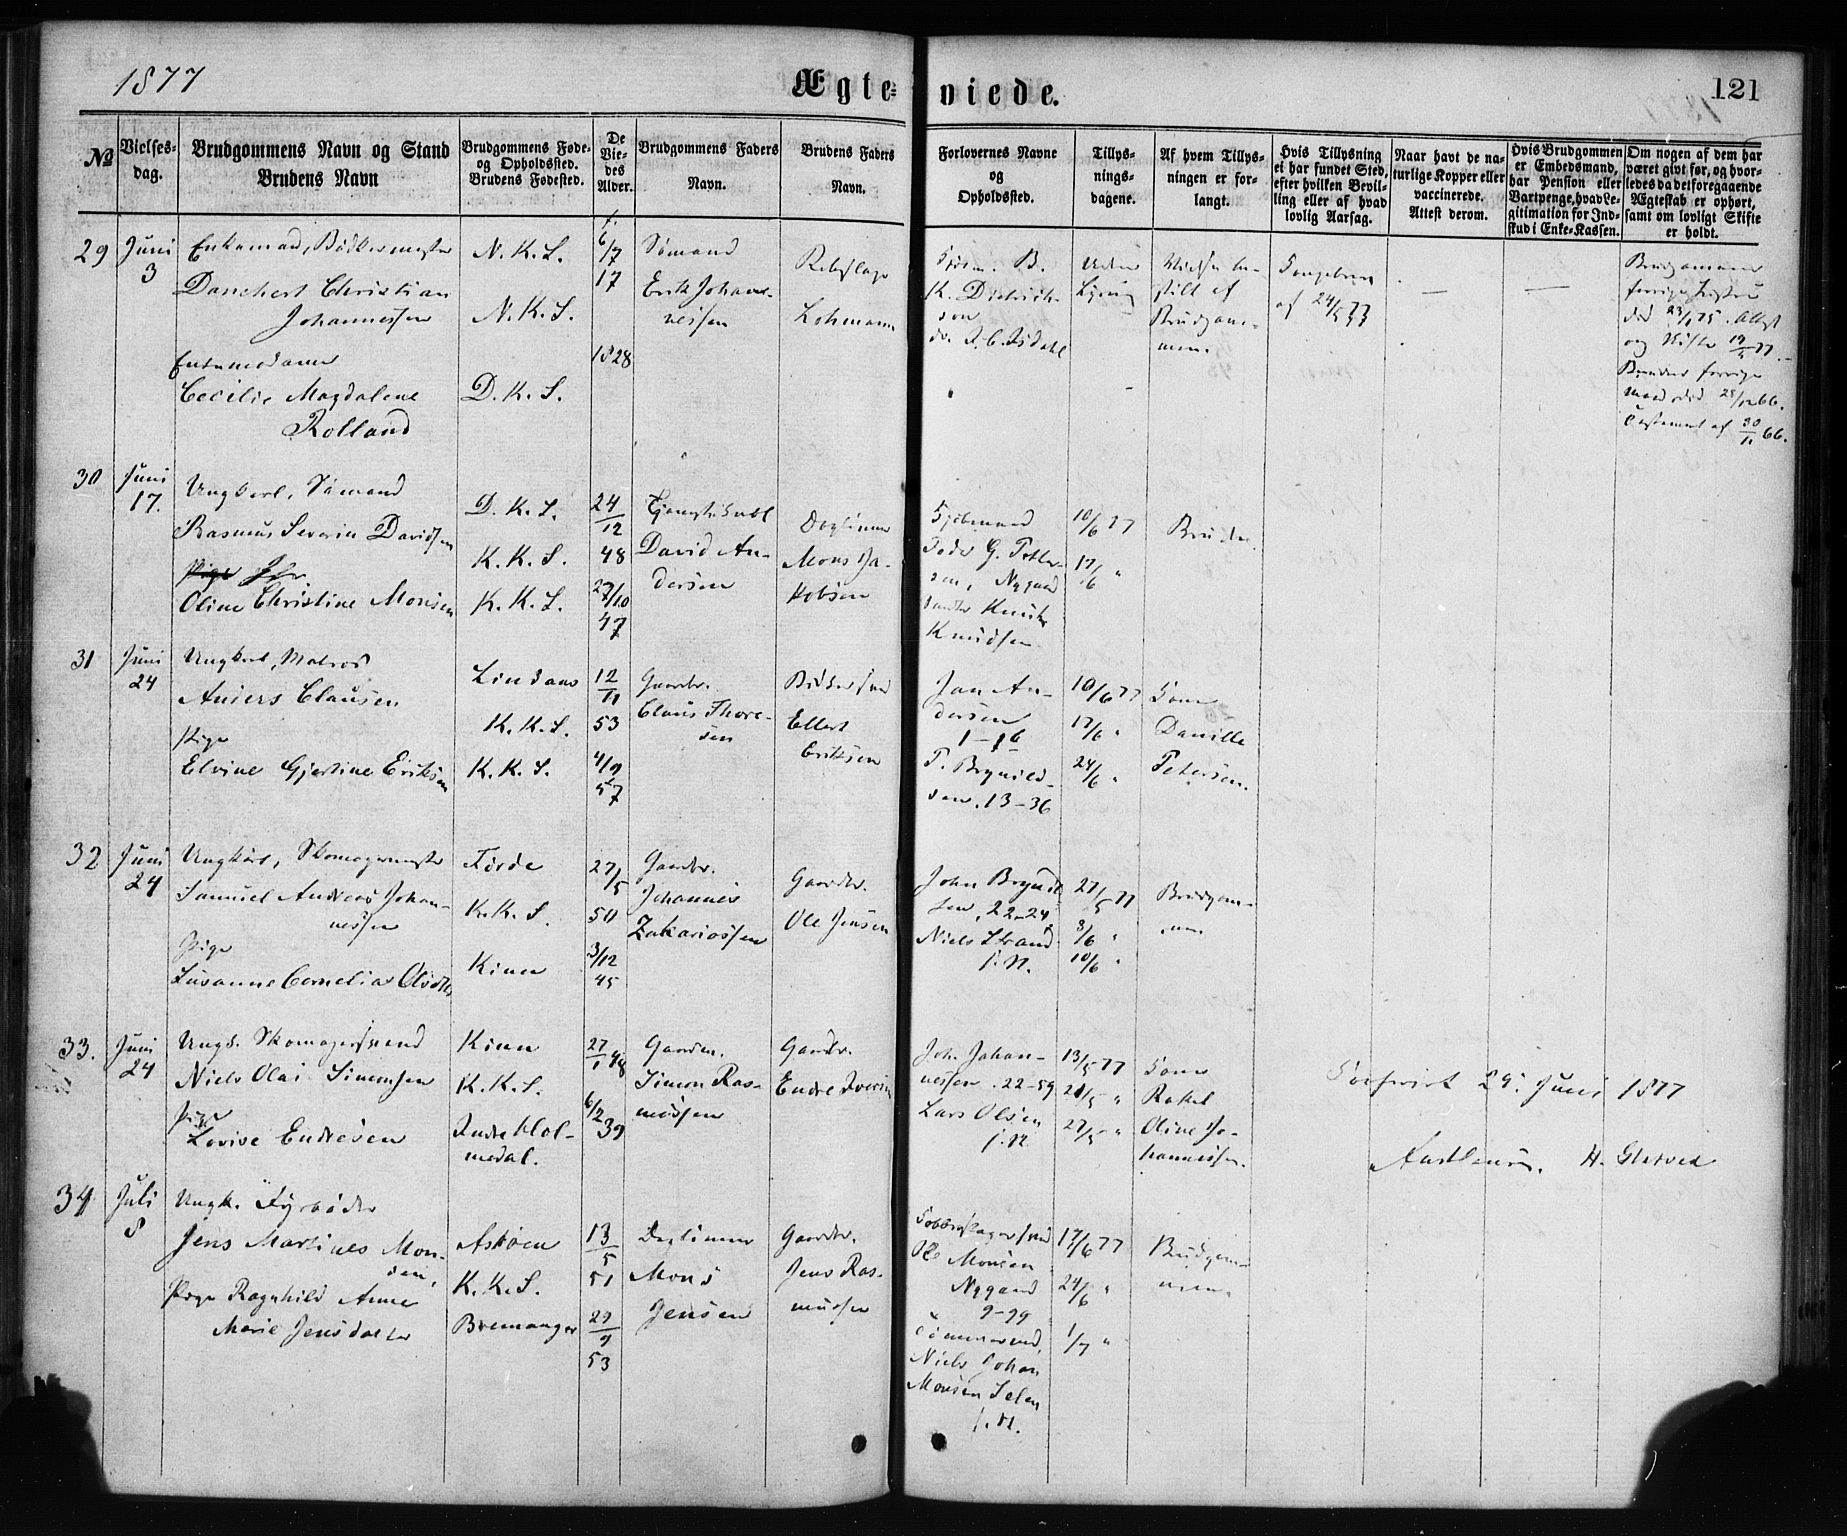 1877
Ægte-
viede.
121
No
Vielses-
dag.
Brudgommens Navn og Stand
Brudens Navn
Brudgommens Føde-
og Opholdssted.
Brudens Fødested.
De
Vie-
des
Alder.
Brudgommens Faders
Navn.
Brudens Faders
Navn.
Forlovernes Navne
og
Opholdssted.
Tillys-
nings-
dagene.
Af hvem Tillys-
ningen er for-
langt.
Hvis Tillysning
ei har fundet Sted,
efter hvilken Bevil-
ling eller af hvad
lovlig Aarsag.
Naar havt de na-
turlige Kopper eller
vaccinerede.
Attest derom.
Hvis Brudgommen
er Embedsmand,
har Pension eller
Vartpenge, hvad Le-
gitimation for Ind-
skud i Enke-Kassen.
Om nogen af dem har
været givt før, og hvor-
ledes da det foregaaende
Ægteskab er ophørt,
samt om lovligt Skifte
er holdt.
29
Juni
3
Enkemand, Bødkermester
Danchert Christian
Johannessen
Enkemadame
Cecilie Magdalene
Rolland
N. K. S.
N. K. S.
D. K. S.
6/7
17
1828
Sømand
Erik Johan-
nessen
Rebslager
Lohmann
K. Dietrich-
son
Uden
Lysning
Brudgom-
men.
af 24/5 77
—
—
30
Juni
17.
Ungkarl, Sømand
Rasmus Severin Davidsen
Oline Christine Monsen
D. K. S.
K. K. S.
K. K. S.
24
12
48
27/10
47
David An-
dersen
Mons Ja-
kobsen
Peder G. Petter-
sen, Nygaard
Knud
Knudsen
10/6 77
17/6 "
Bruden
31
Juni
24
Ungkarl, Matros
Anders Clausen
Pige
Elvine Gjertine Eriksen
Lindaas
K. K. S.
K. K. S.
12
11
53
4/9
57
Gaardbr.
Claus Thore-
sen
Bødkersvend
Ellert
Eriksen
Jan An-
dersen
1-16
T. Brynild-
sen. 13-36
10/6 77
17/6 "
24/6 "
Daniele
Petersen.
32
Juni
24
Ungkarl, Skomagermester
Samuel Andreas Johan-
nessen
Pige
Susanne Cornelia Olsdtr
Førde
K. K. S.
Kinn
27/5
50
3/12
45
Gaardbr.
Johannes
Zakariassen
Gaardbr.
Ole Jensen
John Brynild-
sen, 22-24
Niels Strand
s. N.
27/5 77
3/6 "
10/6 "
Brudgom-
men
33.
Juni
24
Ungk. Skomagersvend
Niels Olai Simonsen
Pige
Lovise Endresen
Kinn
K. K. S.
Indre Hol-
medal.
27
1 48
6/2 39
Gaardm.
Simon Ras-
mussen
Gaardbr.
Endre Iversen
Joh. Johan-
nessen. 22-59
Lars Olsen
s. N.
13/5 77
21/5 "
27/5 "
Rakel
Oline Jo-
hannessen.
29. Juni 1877
34
Juli
8
Ungk. Fyrbøder
Jens Martines Mon-
sen,
Pige Ragnhild Anne
Marie Jensdatter
Askøen
K. K. S.
Bremanger
13
5
51
29
9
53
Daglønner
Mons
Jensen
Gaardbr.
Jens Ras-
mussen
Ole Monsen
Nygaard
9-99
Niels Johan
Monsen Selen
s. N.
17/6 77
24/6 "
1/7 "
Brudgom-
men.